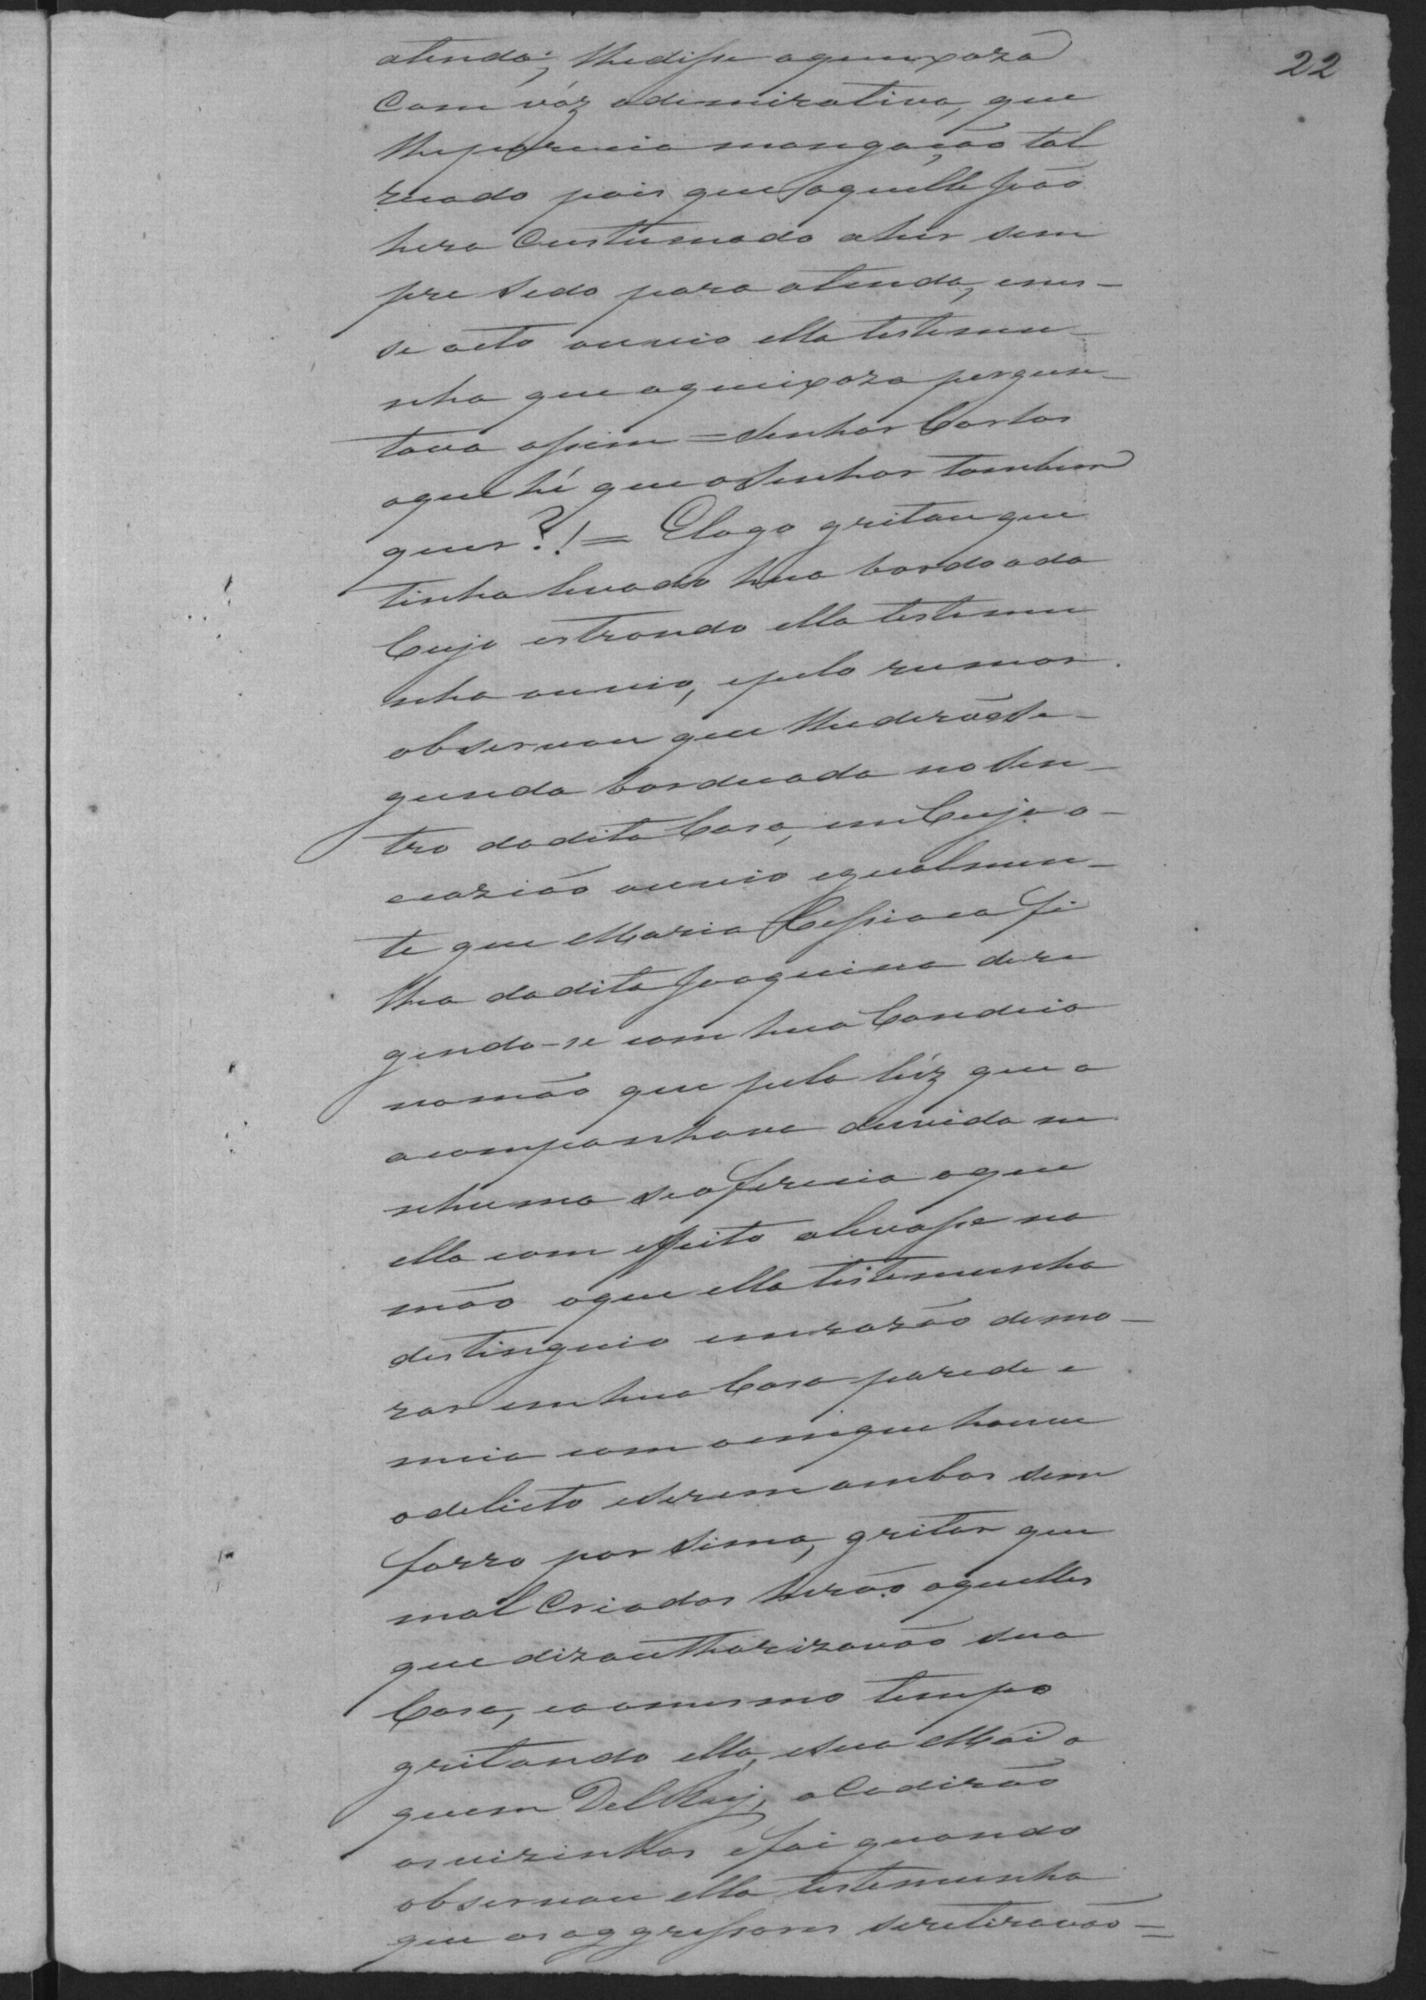 22
atenda; lhedisse aqueixoza
Com vóz adimirativa, que
lheparecia mangação tal
recado pois que aquelle João
hera Custumado ahir sem
pre sedo para atenda, enes-
se acto ouvio ella testemu-
nha que aqueixoza pergun-
tava assim = Senhor Carlos
oque hé que o Senhor tambem
quer?! = Elogo gritou que
tinha levado hua bordoada
Cujo estrondo ella testemu
nha ouvio, epelo rumor
observou que lhederão se-
gunda borduada no den-
tro dadita Casa, em Cuja o-
cazião ouvio igualmen-
te que Maria fi
lha dadita Joaquina dere
gindo-se com hua Candeia
namão que pela lúz que a
acompanhava duvida ne
nhuma seoferecia aque
ella com effeito alevasse na
mão oque ella testemunha
destinguio emrazão demo-
rar em hua Casa parede e
meia com aemque houve
odelicto eserem ambas sem
forro por sima, gritar que
mal Criados herão aquelles
que dizauthorizavão sua
Casa, eaomesmo tempo
gritando ella, esua Mai a
quem Del Rey, aCodirão
osvizinhos efoi quando
observou ella testemunha
que osaggressores seretiravão=